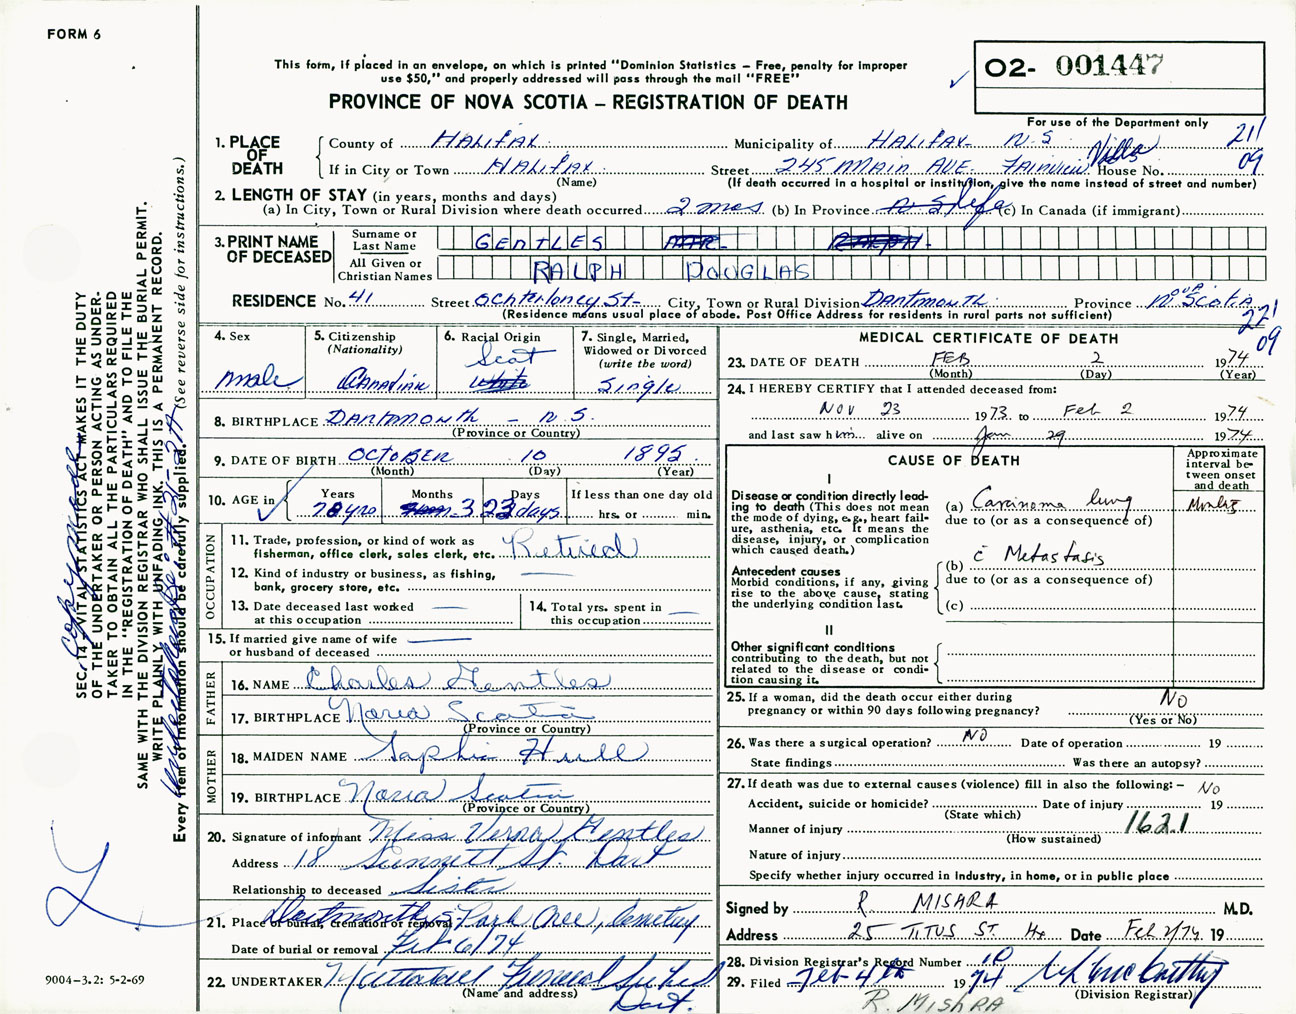 FORM 6
This form, if placed in an envelope, on which is printed "Dominion Statistics – Free, penalty for improper
use $50," and properly addressed will pass through the mail "FREE"
PROVINCE OF NOVA SCOTIA – REGISTRATION OF DEATH
02- 001447
For use of the Department only
211
09
1. PLACE OF DEATH
County of HALIFAX Municipality of HALIFAX N.S
If in City or Town HALIFAX Street 245 MAIN AVE. FAIRVIEW Villa House No.
(Name) (If death occurred in a hospital or institution, give the name instead of street and number)
2. LENGTH OF STAY (in years, months and days)
(a) In City, Town or Rural Division where death occurred 2 mos (b) In Province N S life (c) In Canada (if immigrant)
3. PRINT NAME OF DECEASED
Surname or Last Name GENTLES
All Given or Christian Names RALPH DOUGLAS
RESIDENCE No. 41 Street Ochterloney St- City, Town or Rural Division Dartmouth Province Nova Scotia
(Residence means usual place of abode. Post Office Address for residents in rural parts not sufficient)
221
09
4. Sex
male
5. Citizenship
(Nationality)
Canadian
6. Racial Origin
Scot
White
7. Single, Married,
Widowed or Divorced
(write the word)
Single
8. BIRTHPLACE Dartmouth – N.S.
(Province or Country)
9. DATE OF BIRTH October 10 1895
(Month) (Day) (Year)
10. AGE in
Years Months Days If less than one day old
78 yrs 3 23 days hrs. or min.
OCCUPATION
11. Trade, profession, or kind of work as
fisherman, office clerk, sales clerk, etc. Retired
12. Kind of industry or business, as fishing,
bank, grocery store, etc.
13. Date deceased last worked
at this occupation
14. Total yrs. spent in
this occupation
15. If married give name of wife
or husband of deceased
FATHER
16. NAME Charles Gentles
17. BIRTHPLACE Nova Scotia
(Province or Country)
MOTHER
18. MAIDEN NAME Sophia Hull
19. BIRTHPLACE Nova Scotia
(Province or Country)
20. Signature of informant Miss Verna Gentles
Address 18 St. Dart
Relationship to deceased Sister
21. Place of burial, cremation or removal Dartmouth, N.S. Park Cemetery
Date of burial or removal Feb 6/74
22. UNDERTAKER Mattatall Funeral Dart.
(Name and address)
MEDICAL CERTIFICATE OF DEATH
23. DATE OF DEATH FEB 2 1974
(Month) (Day) (Year)
24. I HEREBY CERTIFY that I attended deceased from:
Nov 23 1973. to Feb 2 1974
and last saw him alive on Jan 29 1974
CAUSE OF DEATH
Approximate
interval be-
tween onset
and death
I
Disease or condition directly lead-
ing to death (This does not mean
the mode of dying, e.g., heart fail-
ure, asthenia, etc. It means the
disease, injury, or complication
which caused death.)
(a) Carcinoma lung
Months
due to (or as a consequence of)
Antecedent causes
Morbid conditions, if any, giving
rise to the above cause, stating
the underlying condition last.
(b) c̄ Metastasis
due to (or as a consequence of)
(c)
II
Other significant conditions
contributing to the death, but not
related to the disease or condi-
tion causing it.
25. If a woman, did the death occur either during
pregnancy or within 90 days following pregnancy? NO
(Yes or No)
26. Was there a surgical operation? NO Date of operation 19
State findings Was there an autopsy?
27. If death was due to external causes (violence) fill in also the following: – No
Accident, suicide or homicide? Date of injury 19
(State which)
Manner of injury 162.1
(How sustained)
Nature of injury
Specify whether injury occurred in industry, in home, or in public place
Signed by R. MISHRA M.D.
Address 25 TITUS ST. Hx Date Feb 2/74 19
28. Division Registrar's Record Number 10
29. Filed Feb 4th 1974
(Division Registrar)
R. MISHRA
SEC. 14 – VITAL STATISTICS ACT MAKES IT THE DUTY
OF THE UNDERTAKER OR PERSON ACTING AS UNDER-
TAKER TO OBTAIN ALL THE PARTICULARS REQUIRED
IN THE "REGISTRATION OF DEATH" AND TO FILE THE
SAME WITH THE DIVISION REGISTRAR WHO SHALL ISSUE THE BURIAL PERMIT.
WRITE PLAINLY WITH UNFADING INK. THIS IS A PERMANENT RECORD.
Every item of information should be carefully supplied. (See reverse side for instructions.)
9004-3.2: 5-2-69